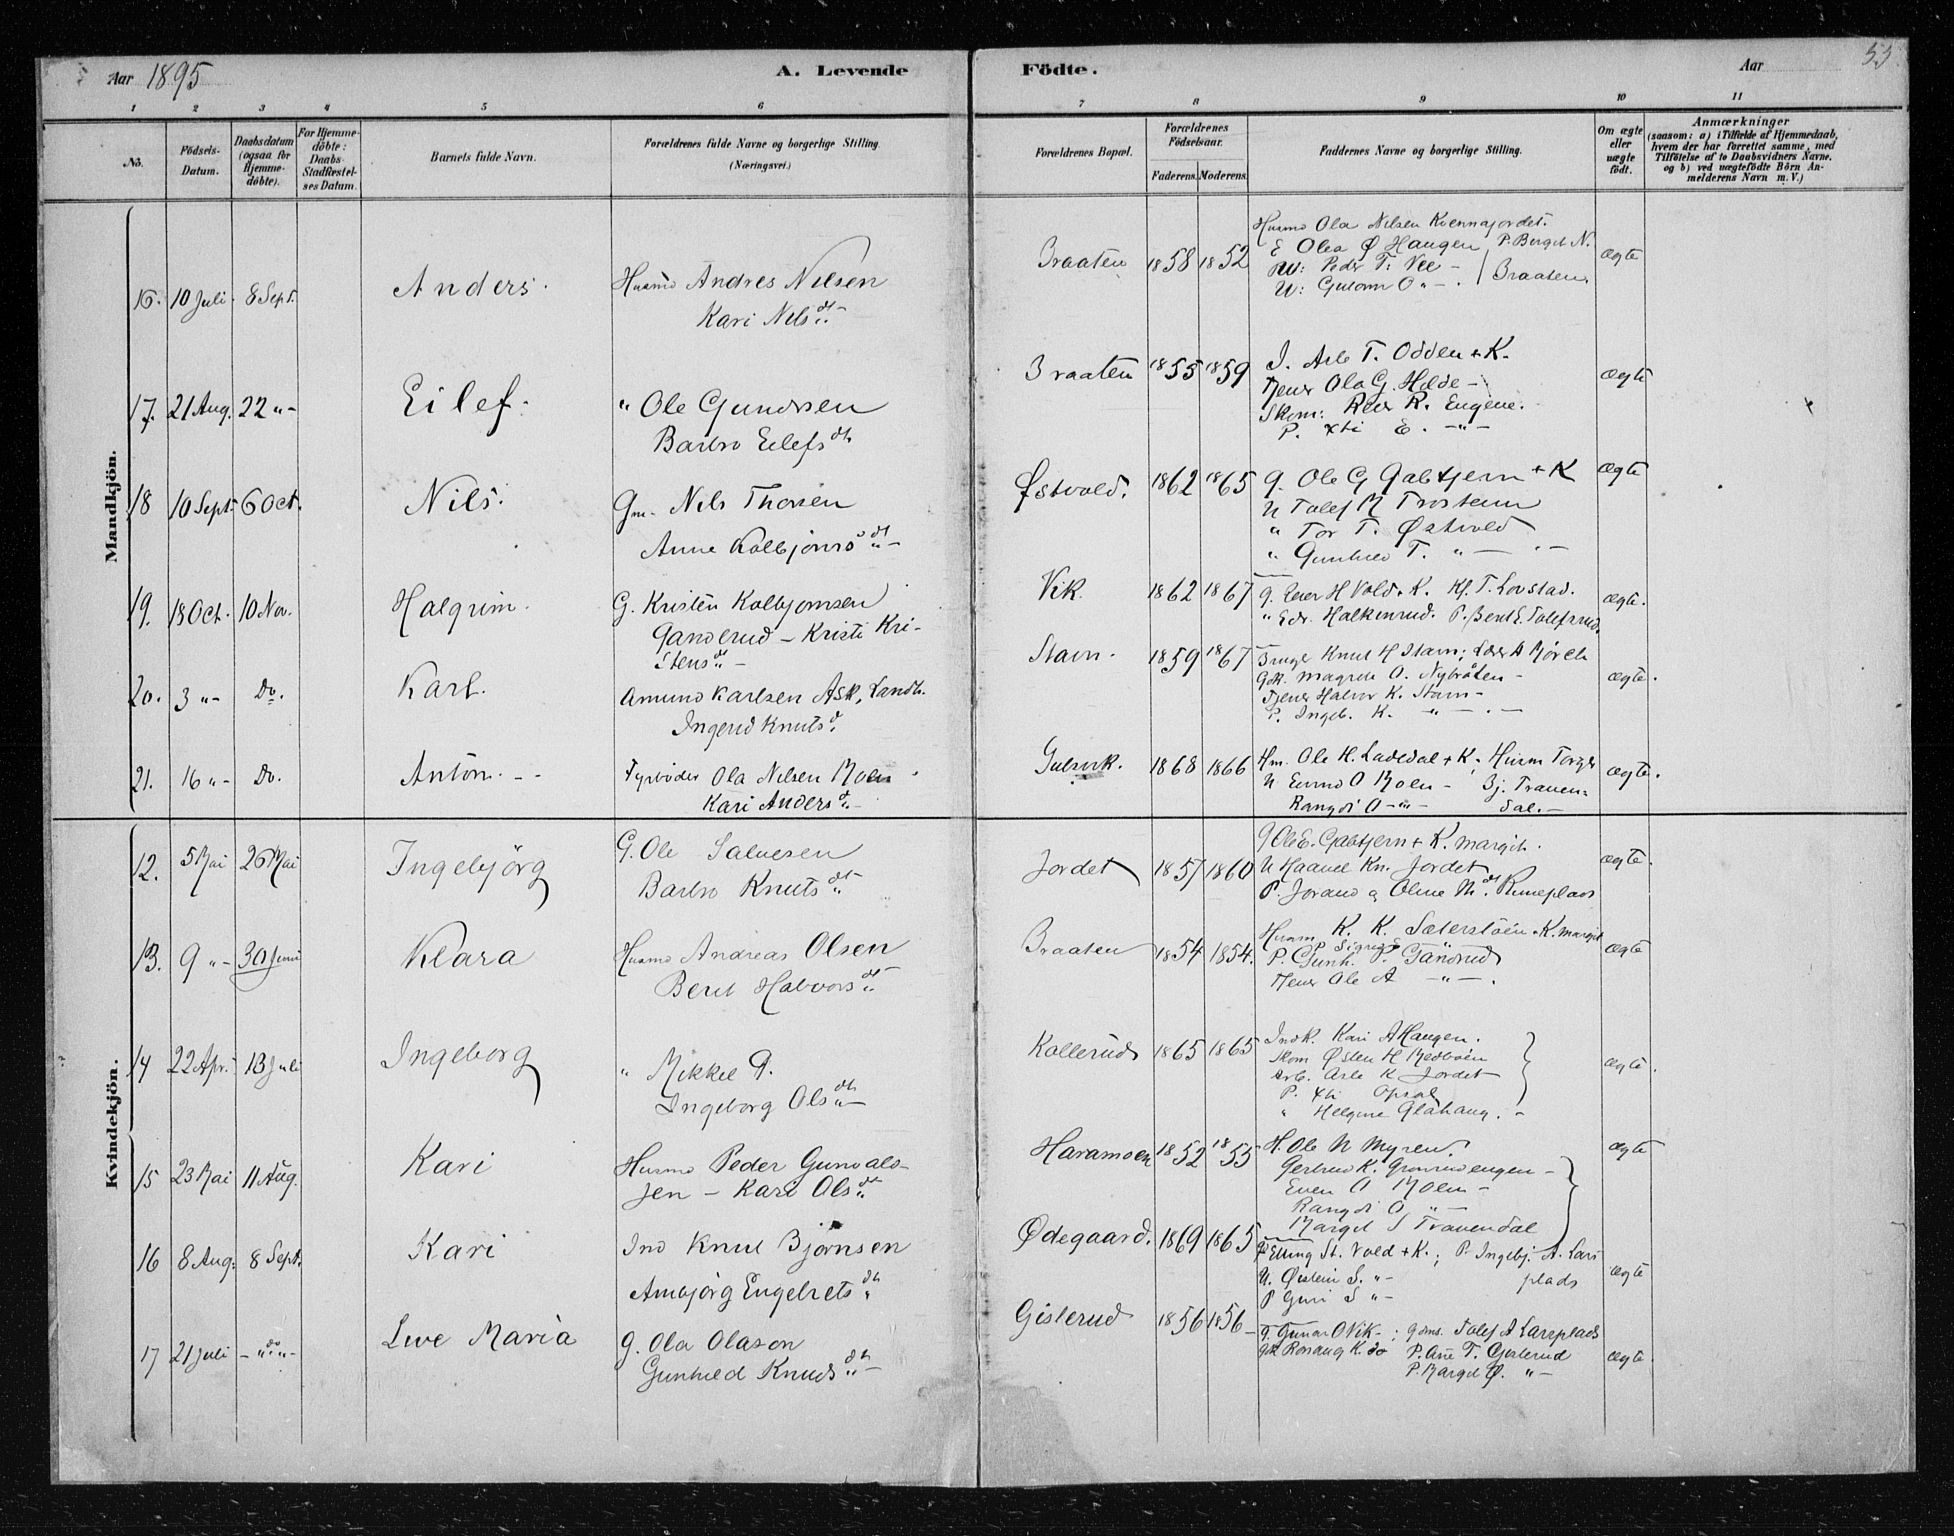 Aar 1895
A. Levende Födte.
Aar
53
1 2 3 4 5 6 7 8 9 10 11
No.
Födsels-Datum.
Daabsdatum (ogsaa for Hjemme-döbte).
For Hjemme-döbte: Daabs-Stadfæstel-ses Datum.
Barnets fulde Navn.
Forældrenes fulde Navne og borgerlige Stilling. (Næringsvei.)
Forældrenes Bopæl.
Forældrenes Födselsaar.
Faderens. Moderens.
Faddernes Navne og borgerlige Stilling.
Om ægte eller uægte födt.
Anmærkninger
(saasom: a) i Tilfælde af Hjemmedaab, hvem der har forrettet samme, med Tilföielse af to Daabsvidners Navne, og b) ved uægtefödte Börn An-melderens Navn m. V.)
Mandkjön.
16. 10 Juli 8 Sept. Anders. Husmd Andres Nilsen
Kari Nilsdt
Braaten 1858 1852 Husmd Ola Nilsen Kvennajordet.
E Olea Ø Haugen P. Bergit N.
U: Peder T. Vee - Braaten.
U: Gulom O " - ægte
17. 21 Aug. 22 " - Eilef. " Ole Gundrsen
Barbro Eilefsdt
Braaten 1855 1859 J. Asle T. Odden + K.
Tjener Ola G. Hilde -
Skom: R. Eugene.
P. Xti E. - " -
ægte
18 10 Sept. 6 Oct. Nils. Gm. Nils Thorsen
Anne Kolbjørnsdt -
Østvold. 1862 1865 G. Ole G Gabtjern + K
U Tolef M Trostemm
" Tor T. Østvold
" Gunhild T. " -
ægte
19. 18 Oct. 10 Nov. Halgrim. G. Kristen Kolbjørnsen
Ganderud - Kristi Kri-
stensdt -
Vik. 1862 1867 G. H Vold + K. Kf. T. Lovstad.
" Edv. Halkinrud. P. Berit E. Tolefsrud.
ægte.
20. 3 " - Do. Karl. Amund Karlsen Ask, Landh.
Ingerid Knutsd.
Stavn. 1859 1867 Bruger Knut H Stavn; Lærer A Mörch
Gdk. Magrete O. Nybråten -
Tjener Halvor K. Stavn -
P. Ingeb. K. " -
ægte.
21. 16 " - Do. Anton. - - Fyrbøder Ola Nilsen Moen
Kari Andersd. -
Gulsvik. 1868 1866 Hm. Ole H. Ladedal + K; Husm Torger
U Eivind O Moen - Bj. Trauen-
Rangdi O - " - dal. -
ægte.
Kvindekjön.
12. 5 Mai 26 Mai Ingebjörg G. Ole Salvesen
Barbro Knutsdt
Jordet 1857 1860 G Ole E. Gabtjern + K. Margit.
U Haavel Kn. Jordet
P. Jorand og Oline M. dt. Runeplads
ægte.
13. 9 " - 30 Juni Klara Husmd Andreas Olsen
Berit Halvorsdt
Braaten 1854 1854. Husm K. K. Sæterstöen + K. Margit
P. Sigrid S "
P. Gunh. P. Gandrud
Tjener Ole A " - .
ægte
14 22 Apr. 13 Juli Ingeborg " Mikkel G.
Ingeborg Olsdt -
Kollerud 1865 1865 Indk. Kari A Haugen.
Skom Østen H Medbøen
Arb. Asle K Jordet
P. Xti Opsal
" Helgine Glåhaug. -
ægte.
15 23 Mai 11 Aug. Kari Husmd Peder Gunvals-
sen - Kari Olsdt
Haramoen 1852 1855 H. Ole N Myren.
Gertrud K. Grønrudengen -
Even O Moen -
Rangdi O " -
Margit S Trauendal
ægte
16 8 Aug. 8 Sept. Kari Ind Knut Bjørnsen
Ambjörg Engebretsdt
Ødegaard. 1869 1865 G Elling St. Vold + K.; P. Ingebj. A. Lars
U. Øistein S. " - plads
P Guri S " -
ægte
17 21 Juli - " do " - Live Maria G. Ola Olason
Gunhild Knudsdt -
Gislerud 1856 1856 - G. Gunar O Vik - ; Gdms. Tolef A Larsplads
Gdk Rønaug K. do P. Ane T. Gislerud
P. Margit Ø. " -
ægte.